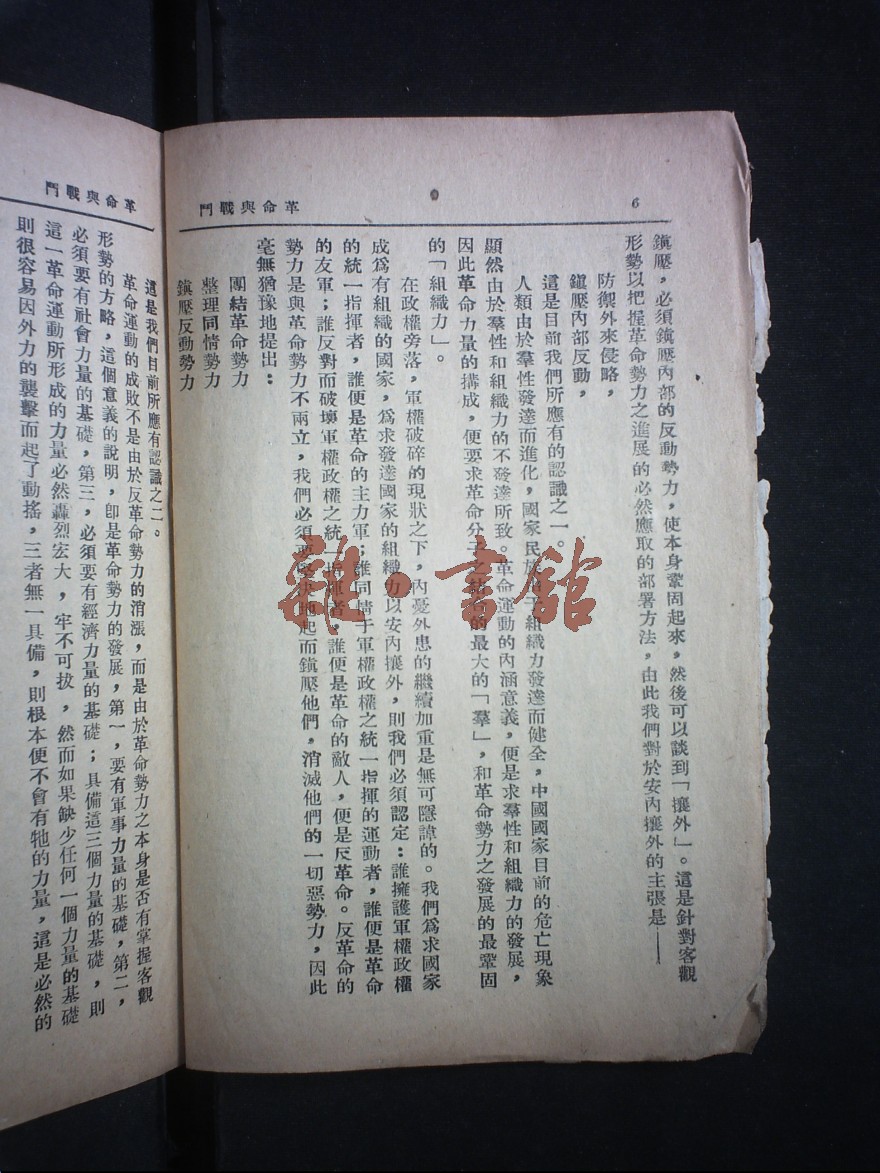 6
革命與戰鬥
鎭壓，必須鎭壓內部的反動勢力，使本身鞏固起來，然後可以談到「攘外」。這是針對客觀
形勢以把握革命勢力之進展的必然應取的部署方法，由此我們對於安內攘外的主張是——
防禦外來侵略，
鎭壓內部反動，
這是目前我們所應有的認識之一。
人類由於羣性發達而進化，國家民族由于組織力發達而健全，中國國家目前的危亡現象
顯然由於羣性和組織力的不發達所致。革命運動的內涵意義，便是求羣性和組織力的發展，
因此革命力量的搆成，便要求革命分子之結合的最大的「羣」，和革命勢力之發展的最鞏固
的「組織力」。
在政權旁落，軍權破碎的現狀之下，內憂外患的繼續加重是無可隱諱的。我們爲求國家
成爲有組織的國家，爲求發達國家的組織力以安內攘外，則我們必須認定：誰擁護軍權政權
的統一指揮者，誰便是革命的主力軍；誰同情于軍權政權之統一指揮的運動者，誰便是革命
的友軍；誰反對而破壞軍權政權之統一指揮者，誰便是革命的敵人，便是反革命。反革命的
勢力是與革命勢力不兩立，我們必須要堅決地起而鎭壓他們，消滅他們的一切惡勢力，因此
毫無猶豫地提出：
團結革命勢力
整理同情勢力
鎭壓反動勢力
革命與戰鬥
這是我們目前所應有認識之二。
革命運動的成敗不是由於反革命勢力的消漲，而是由於革命勢力之本身是否有掌握客觀
形勢的方略，這個意義的說明，卽是革命勢力的發展，第一，要有軍事力量的基礎，第二，
必須要有社會力量的基礎，第三，必須要有經濟力量的基礎；具備這三個力量的基礎，則
這一革命運動所形成的力量必然轟烈宏大，牢不可拔，然而如果缺少任何一個力量的基礎
則很容易因外力的襲擊而起了動搖，三者無一具備，則根本便不會有牠的力量，這是必然的
雜·書館